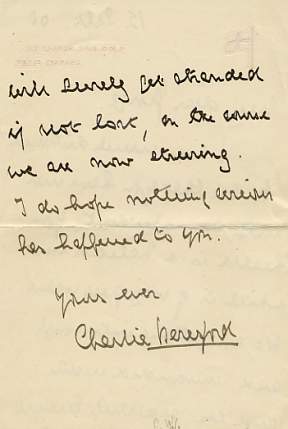 will surely get stranded
if not lost, on the course
we are now steering.
I do hope nothing serious
has happened to you.
Yours ever
Charlie Beresford